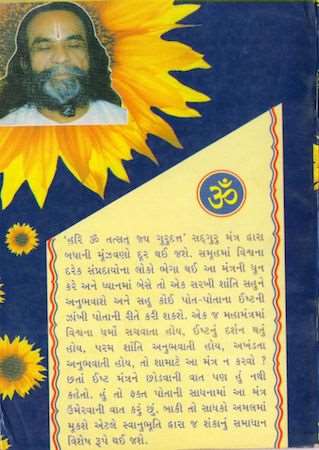 ॐ
'હરિ ૐ તત્સત્ જય ગુરુદત્ત' સદ્ગુરુ મંત્ર દ્વારા
બધાની મૂંઝવણો દૂર થઈ જશે. સમૂહમાં વિશ્વના
દરેક સંપ્રદાયોના લોકો ભેગા થઈ આ મંત્રની ધૂન
કરે અને ધ્યાનમાં બેસે તો એક સરખી શાંતિ સહુને
અનુભવાશે અને સહુ કોઈ પોત-પોતાના ઈષ્ટની
ઝાંખી પોતાની રીતે કરી શકશે. એક જ મહામંત્રમાં
વિશ્વના ધર્મો સચવાતા હોય, ઈષ્ટનું દર્શન થતું
હોય, પરમ શાંતિ અનુભવાતી હોય, અખંડતા
અનુભવાતી હોય, તો શામાટે આ મંત્ર ન કરવો ?
છતાં ઈષ્ટ મંત્રને છોડવાની વાત પણ હું નથી
કહેતો. હું તો ફક્ત પોતાની સાધનામાં આ મંત્ર
ઉમેરવાની વાત કરું છું. બાકી તો સાધકો અમલમાં
મૂકશે એટલે સ્વાનુભૂતિ દ્વારા જ શંકાનું સમાધાન
વિશેષ રૂપે થઈ જશે.